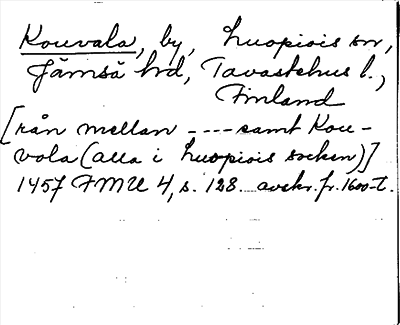 Kouvala, by, Luopiois sn,
Jämsä hd, Tavastehus l.,
Finland
[rån mellan ---- samt Kou-
vola (alla i Luopiois socken)]
1457 FMU 4, s. 128. avskr. fr. 1600-t.